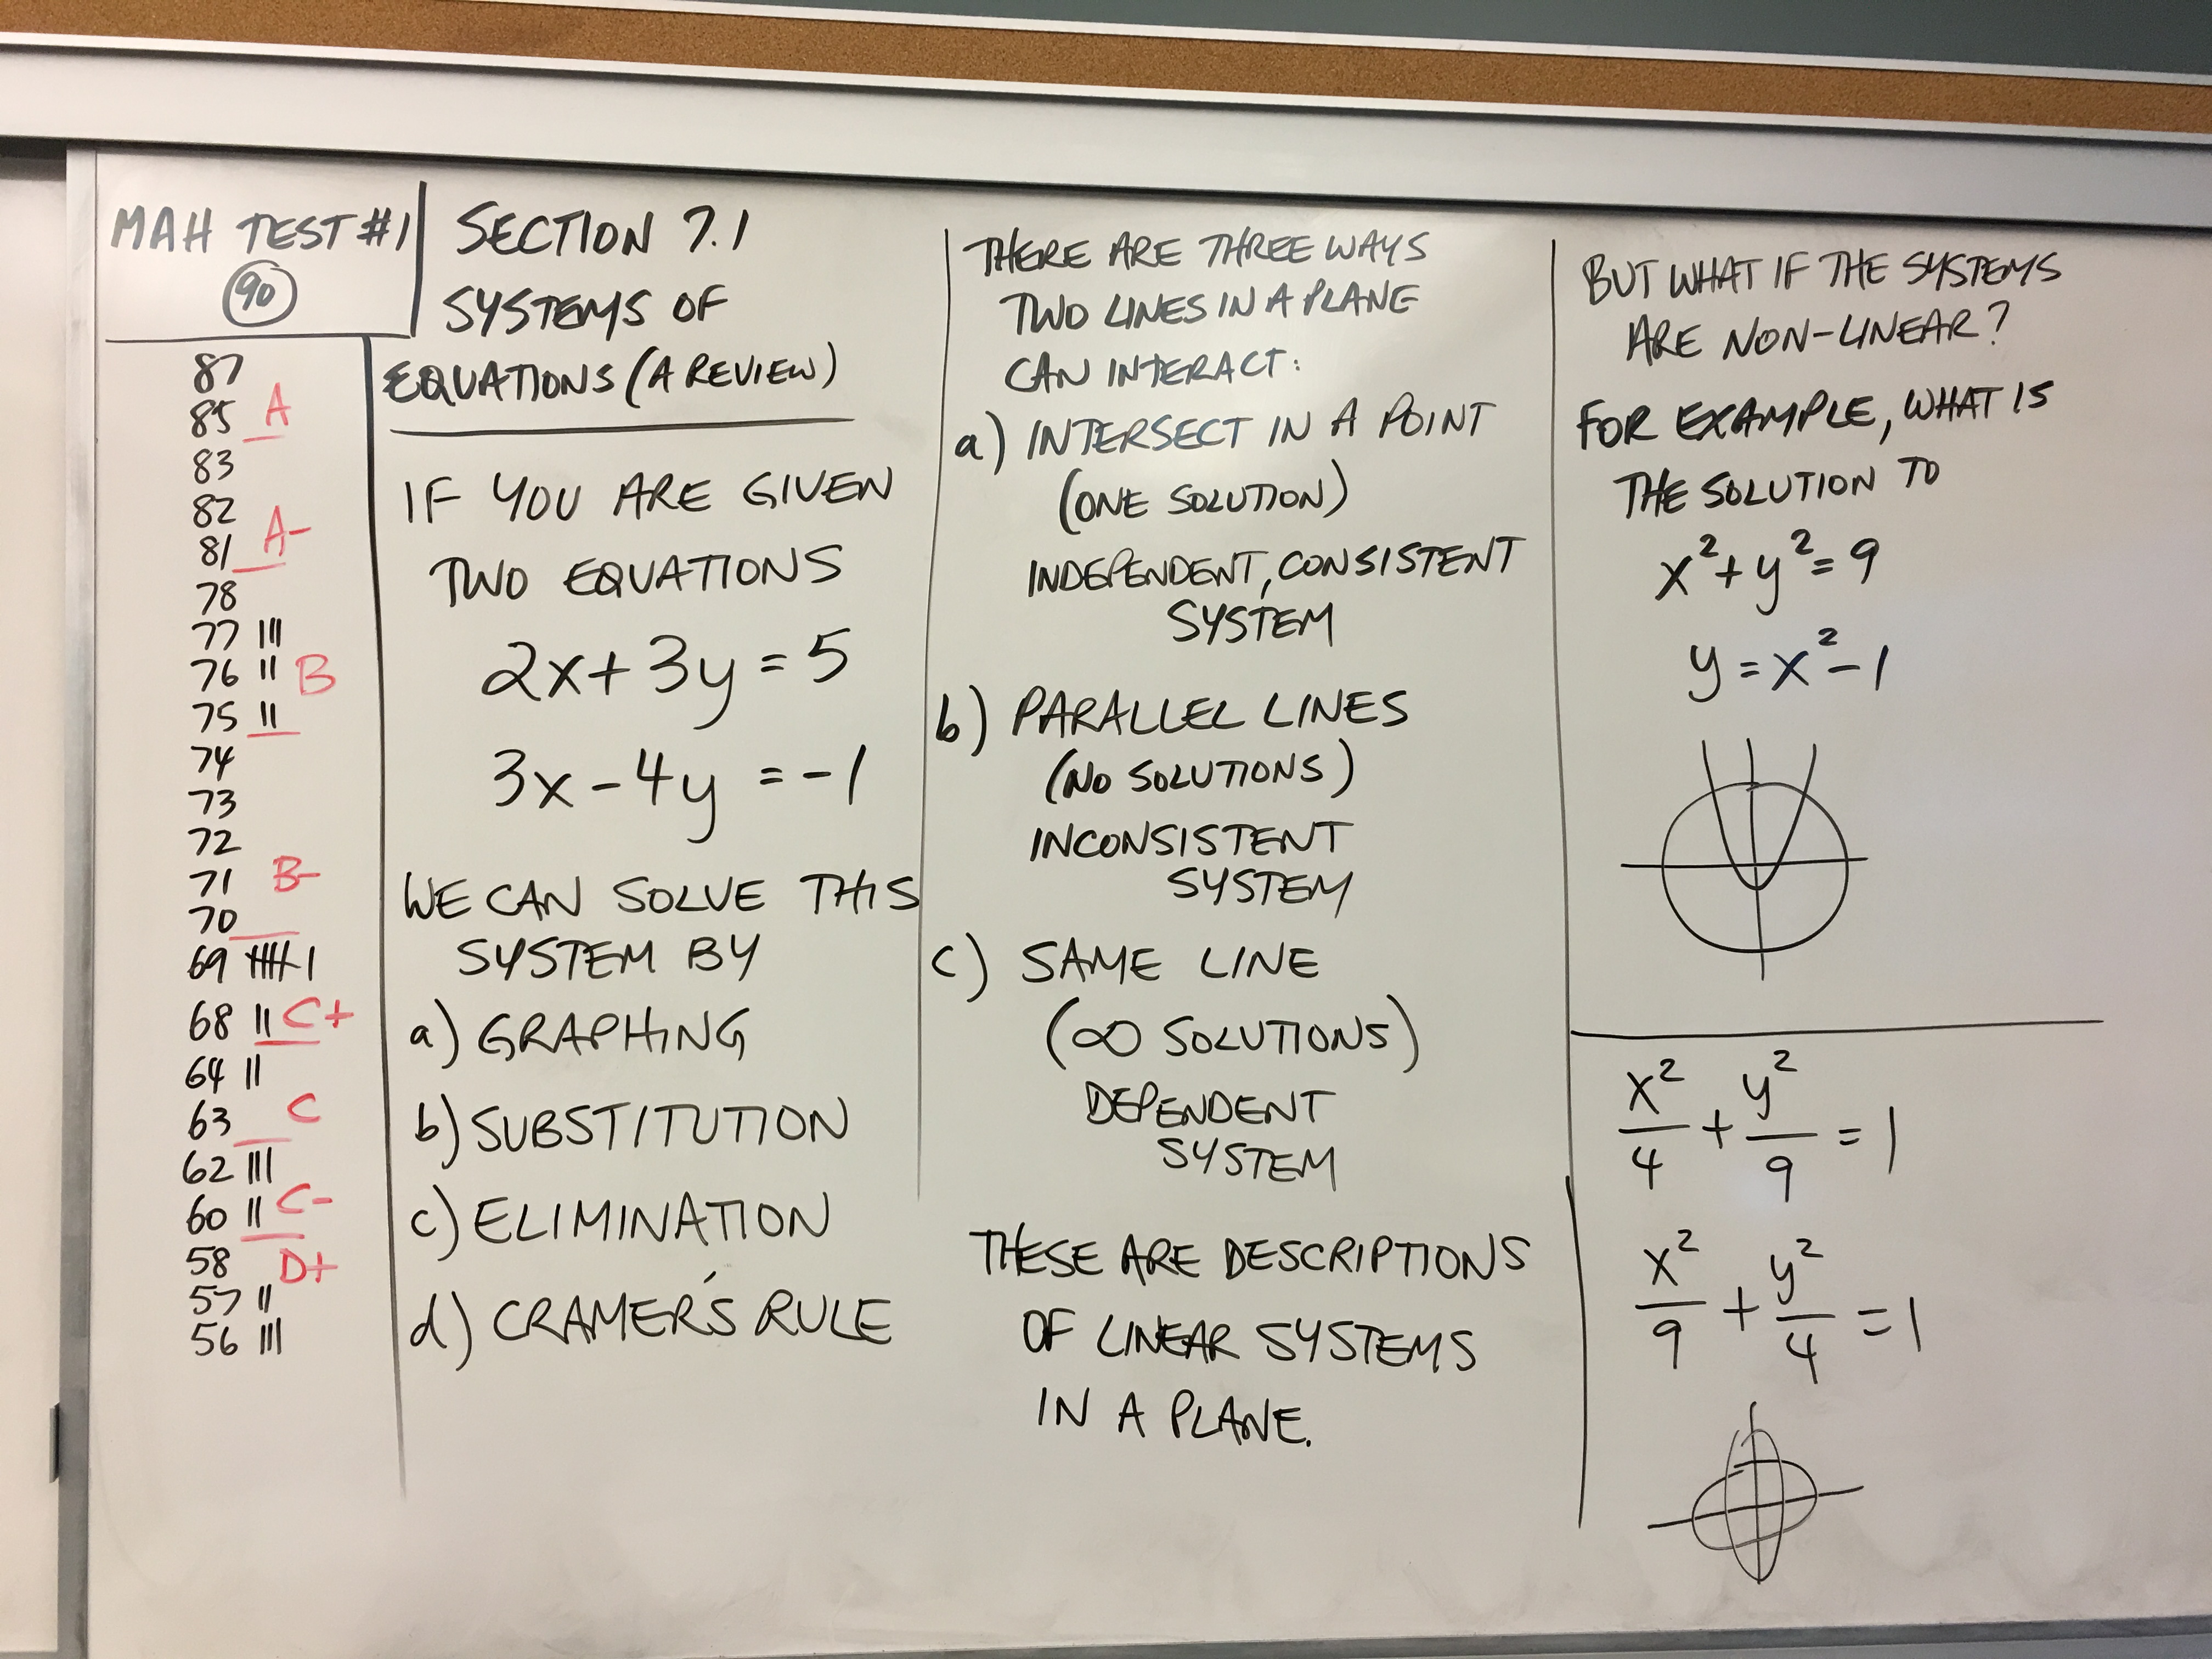 MAH TEST #1
90
87
85 A
83
82
81 A-
78
77 |||
76 || B
75 ||
74
73
72
71 B-
70
69 卌 |
68 || C+
64 ||
63 C
62 |||
60 || C-
58 D+
57 ||
56 |||
SECTION 7.1
SYSTEMS OF
EQUATIONS (A REVIEW)
IF YOU ARE GIVEN
TWO EQUATIONS
2x+3y=5
3x-4y=-1
WE CAN SOLVE THIS
SYSTEM BY
a) GRAPHING
b) SUBSTITUTION
c) ELIMINATION
d) CRAMER'S RULE
THERE ARE THREE WAYS
TWO LINES IN A PLANE
CAN INTERACT:
a) INTERSECT IN A POINT
(ONE SOLUTION)
INDEPENDENT, CONSISTENT
SYSTEM
b) PARALLEL LINES
(NO SOLUTIONS)
INCONSISTENT
SYSTEM
c) SAME LINE
(∞ SOLUTIONS)
DEPENDENT
SYSTEM
THESE ARE DESCRIPTIONS
OF LINEAR SYSTEMS
IN A PLANE.
BUT WHAT IF THE SYSTEMS
ARE NON-LINEAR?
FOR EXAMPLE, WHAT IS
THE SOLUTION TO
x²+y²=9
y=x²-1
x²/4 + y²/9 = 1
x²/9 + y²/4 = 1